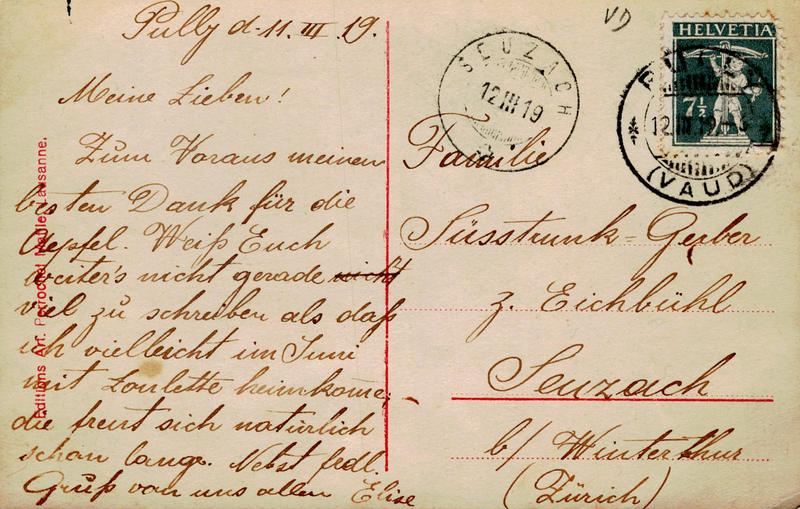 Pully d. 11. III. 19.
Meine Lieben!
Zum Voraus meinen
besten Dank für die
Aepfel. Weiß Euch
weiter's nicht gerade nicht
viel zu schreiben als daß
ich vielleicht im Juni
mit Loulette heimkome;
die freut sich natürlich
schon lange. Nebst frdl.
Gruß von uns allen Elise
Editions Art. Perrochet Lausanne.
VD
SEUZACH
12 III 19
HELVETIA
7½
PULLY
12 III 19
(VAUD)
Familie
Süsstrunk-Gerber
z. Eichbühl
Seuzach
b/ Winterthur
(Zürich)